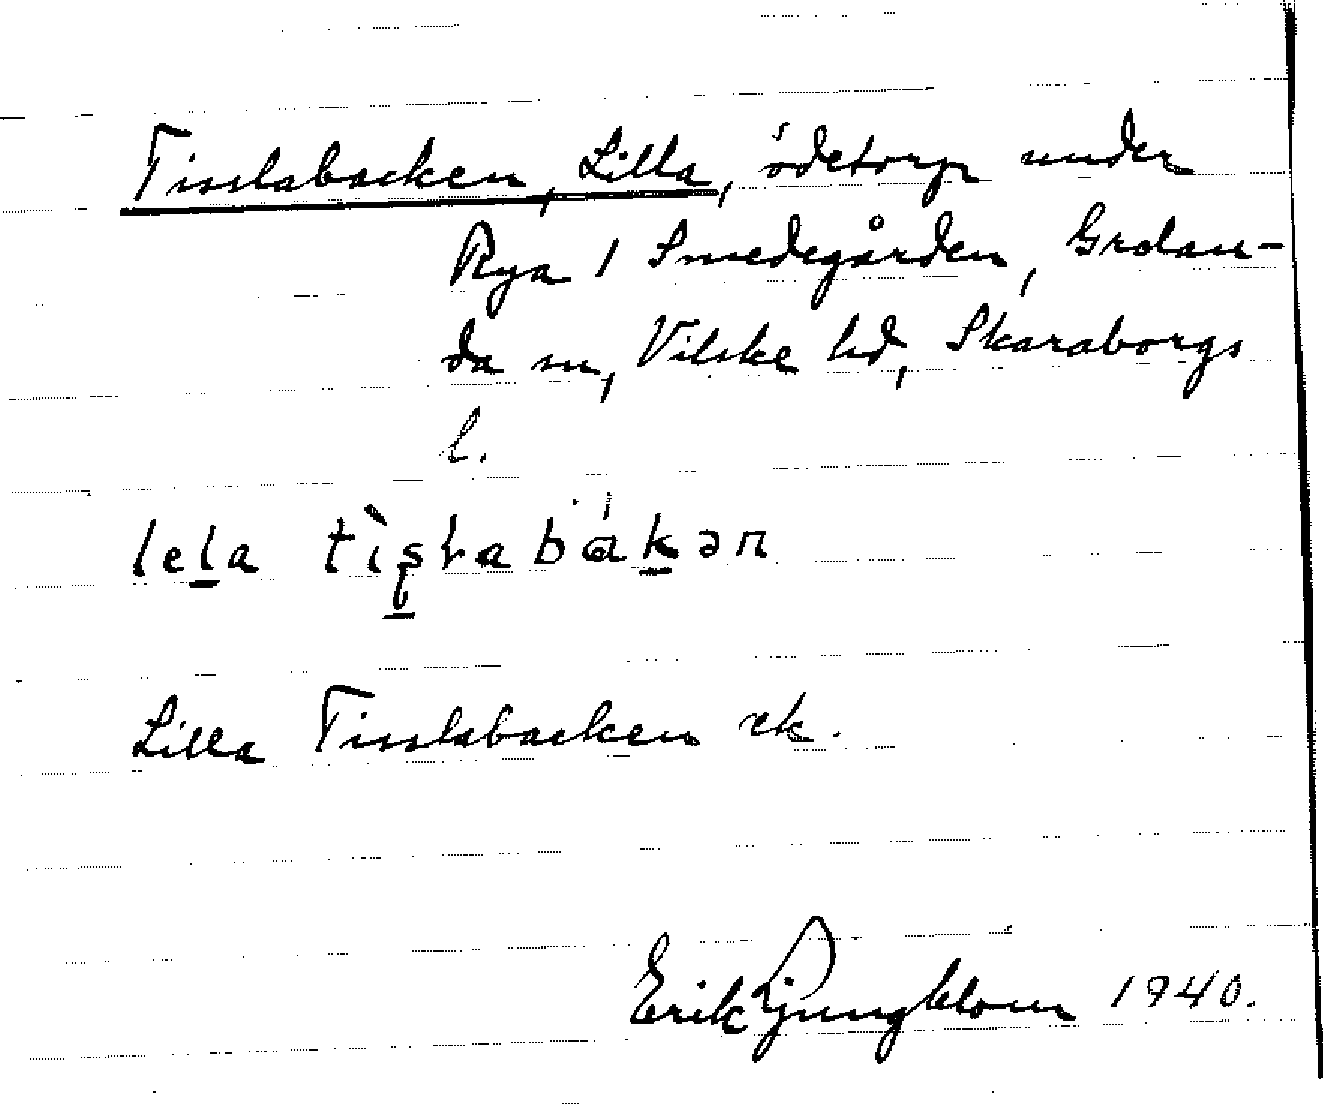 Tisslabacken, Lilla, ödetorp under
Rya 1 Smedegården, Grolan-
da sn, Vilske hd, Skaraborgs
l.
lela
Lilla Tisslabacken rk.
Erik Ljungblom 1940.